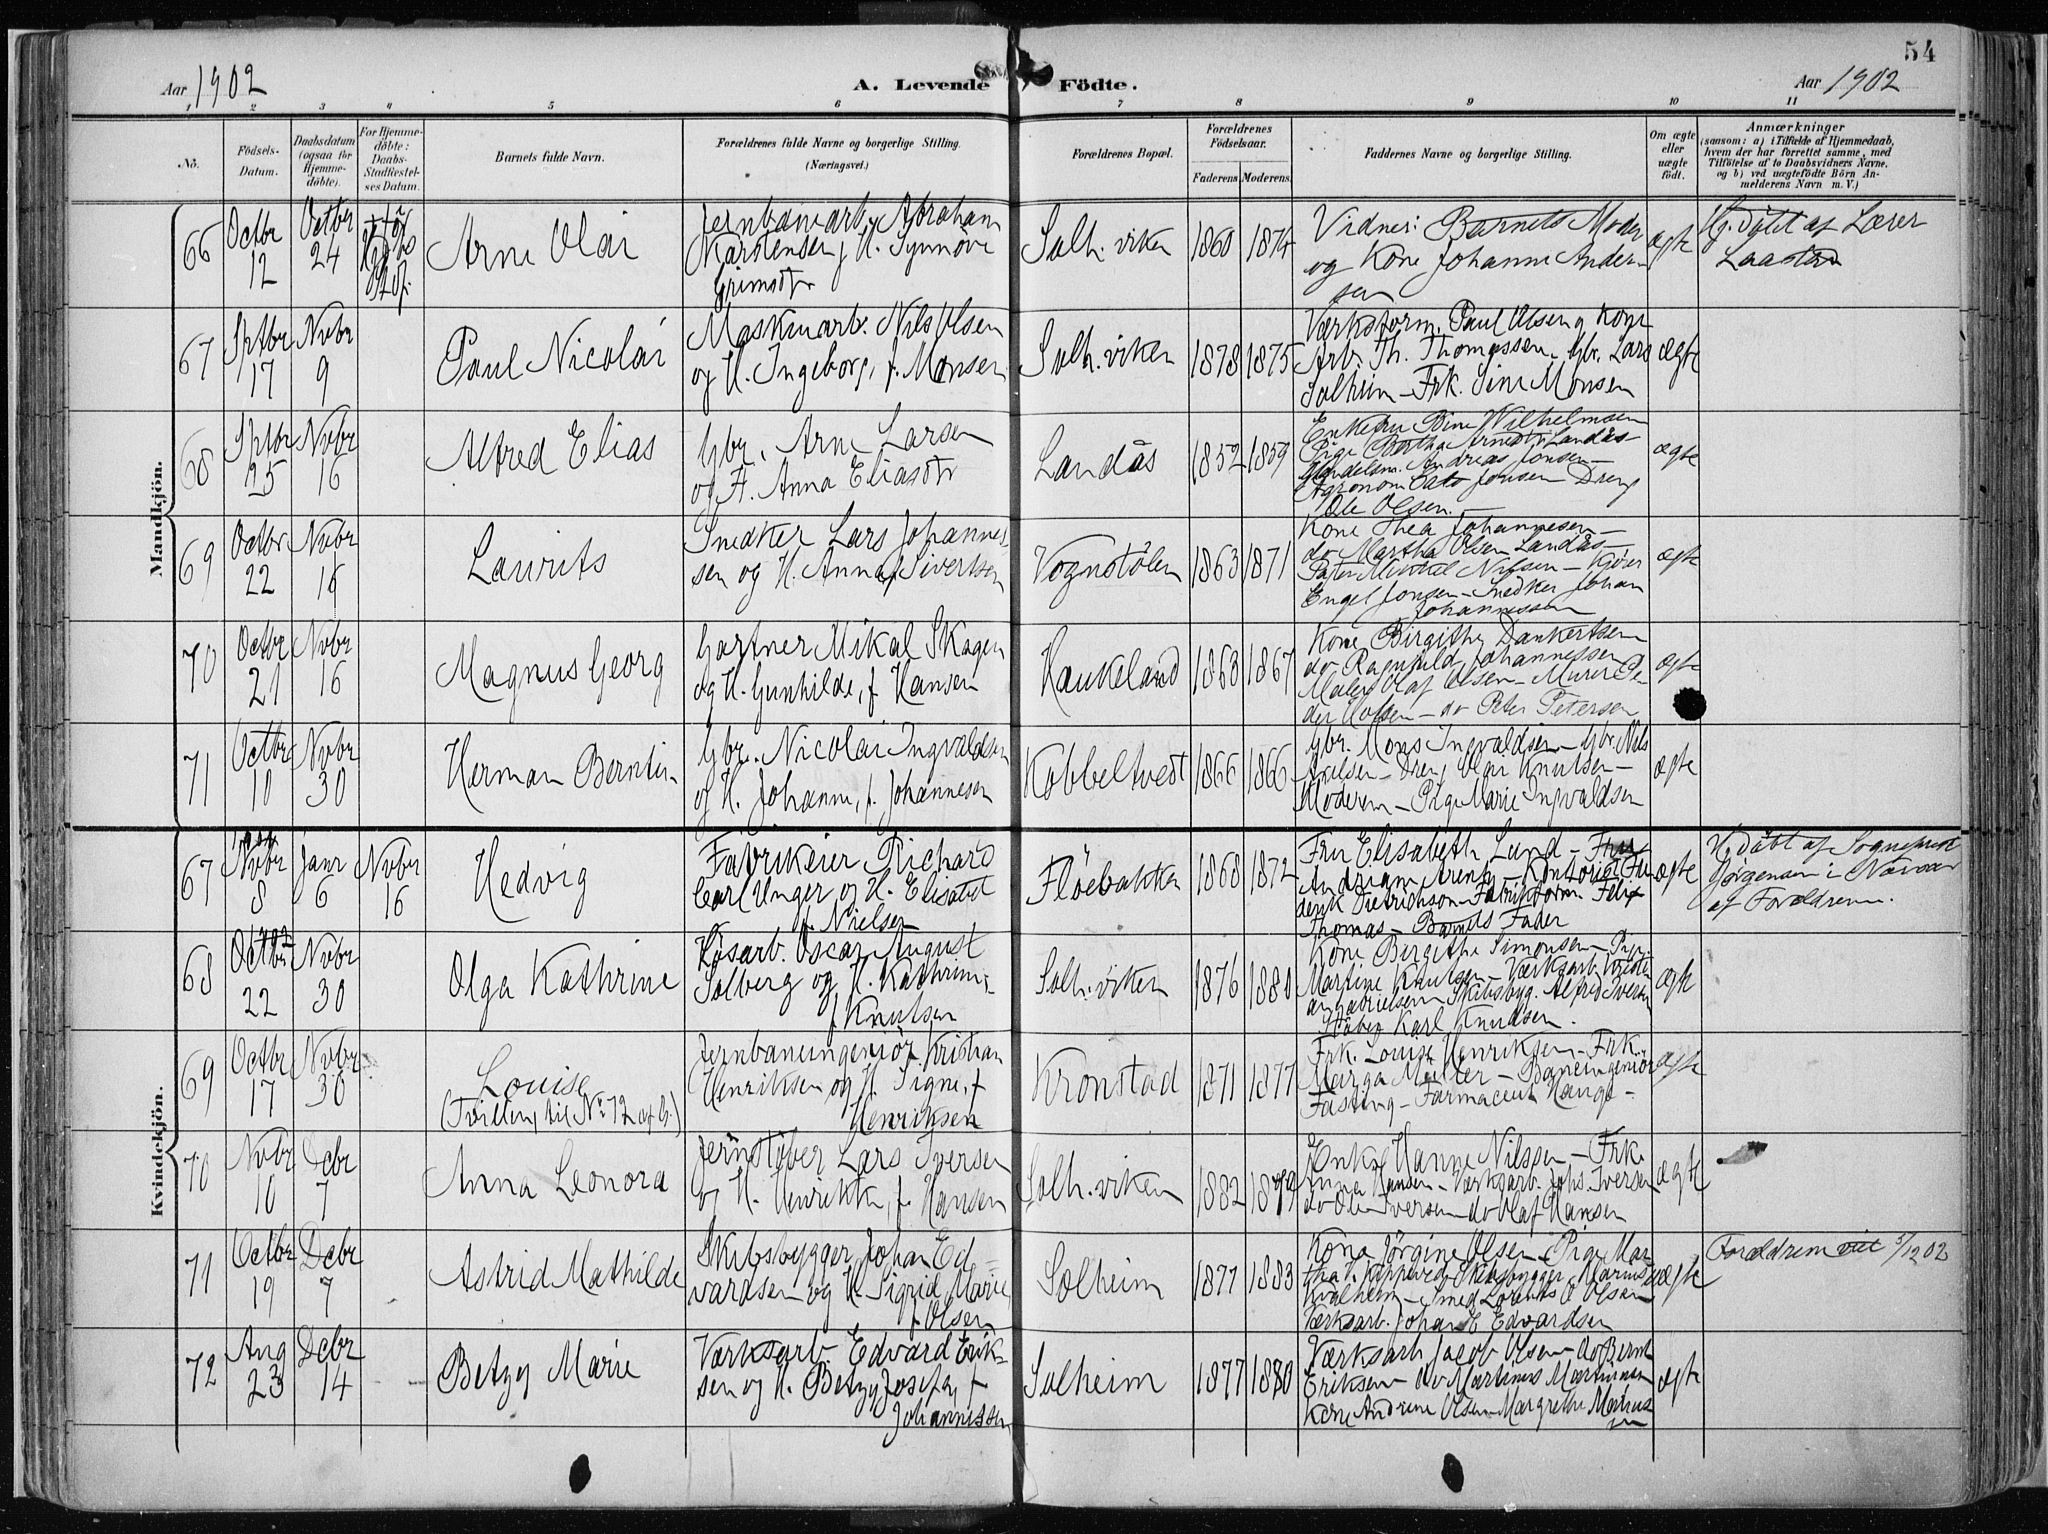 54
Aar 1902
A. Levende Födte.
Aar 1902
1 2 3 4 5 6 7 8 9 10 11
No.
Födsels-
Datum.
Daabsdatum
(ogsaa for
Hjemme-
döbte).
For Hjemme-
döbte:
Daabs-
Stadfæstel-
ses Datum.
Barnets fulde Navn.
Forældrenes fulde Navne og borgerlige Stilling.
(Næringsvei.)
Forældrenes Bopæl.
Forældrenes
Födselsaar.
Faderens. Moderens.
Faddernes Navne og borgerlige Stilling.
Om ægte
eller
uægte
födt.
Anmærkninger
(sansom: a) i Tilfælde af Hjemmedaab,
hvem der har forrettet samme, med
Tilföielse af to Daabsvidners Navne,
og b) ved uægtefödte Börn An-
melderens Navn m. V.)
Mandkjön.
66
Octbr
12
Octbr
24
Arne Olai
Jernbanearb. Abraham
Karstensen, H. Synnöve
Grimsdtr
Solh.viken
1860
1874
Vidner: Barnets Moder
og Kone Johanne Ander-
sen
ægte
Hj. döbt af Lærer
Laastad
67
Sptbr
17
Nvbr
9
Paul Nicolai
Maskinarb. Nils Olsen
og H. Ingeborg, f. Monsen
Solh.viken
1878
1875
Værksform. Paul Olsen og Kone
Arb. Th. Thomassen - Gbr. Lars
Solheim - Frk. Sine Monsen
ægte
68
Sptbr
25
Nvbr
16
Alfred Elias
Gbr. Arne Larsen
og H. Anna Eliasdtr
Landås
1852
1859
Enkefru Bine Wilhelmsen
Pige Bertha Arnedtr Landås -
Handelsm. Andreas Jonsen -
Agronom Cato Jonsen Dreng
Ole Olsen. -
ægte
69
Octbr
22
Nvbr
16
Laurits
Snedker Lars Johannes-
sen og H. Anna f Sivertsen
Vognstölen
1863
1871
Kone Thea Johannesen -
do Martha Olsen Landås -
Nilsen - Kjörer
Engel Jonsen - Snedker Johan
Johannessen
ægte
70
Octbr
21
Nvbr
16
Magnus Georg
Gartner Mikal Skagen
og H. Gunhilde, f. Hansen
Haukeland
1868
1867
Kone Birgithe Dankertsen
do Ragnhild Johannessen
Maler Olaf Olsen - Murer Pe-
der - do Peter Petersen
ægte
71
Octbr
10
Nvbr
30
Herman Berntin
Gbr. Nicolai Ingvaldsen
og H. Johanne, f. Johannesen
Kobbeltvedt
1866
1866
Gbr. Mons Ingvaldsen - Gbr. Nils
Axelsen - Dreng Olai Knutsen -
Moderen - Pige Marie Ingvaldsen
ægte
Kvindekjön.
67
Nvbr
8
Janr
6
Nvbr
16
Hedvig
Fabrikeier Richard
Carl Unger og H. Elisabet
f. Nielsen
Flöebakken
1868
1872
Fru Elisabeth Lund - Fru
Kontorist Fre
derik Dietrichson - Fabrikform. Felix
Thomas - Barnets Fader
ægte
Hj. döbt af Sogneprest
Jörgensen i
af Forældrene.
68
Octbr
22
Nvbr
30
Olga Kathrine
Oscar August
Solberg og H. Kathrine
f Knutsen
Solh.viken
1876
1880
Kone Birgithe Simonsen - Pige
Martine Knutsen - Værksarb. Kristi
an Gabrielsen Skibsbyg. Alfred Iversen
Stöber Karl Knudsen.
ægte
69
Octbr
17
Nvbr
30
Louise
(Tvilling til No 72 af G.)
Jernbaneingeniör Kristian
Henriksen og H. Signe, f
Henriksen
Kronstad
1871
1877
Frk. Louise Henriksen - Frk.
Marga Möller - Baneingeniör
Fasting - Farmaceut Hauge -
ægte
70
Nvbr
10
Dcbr
7
Anna Leonora
Jernstöber Lars Iversen
og H. Henrikke, f. Hansen
Solh.viken
1882
1879
Enke Hanne Nilssen - Frk.
Anna Hansen - Værksarb. Johs. Iversen
do Ole Iversen do Olaf Hansen
ægte
71
Octbr
19
Dcbr
7
Astrid Mathilde
Skibsbygger Johan Ed-
vardsen og H. Sigrid Marie
f Olsen
Solheim
1877
1883
Kone Jörgine Olsen - Pige Mar-
tha Skibsbygger Marius
Kvalheim - Smed Lorents O Olsen
Værksarb. Johan E Edvardsen
ægte
Forældrene viet 5/12 02
72
Aug
23
Dcbr
14
Betzy Marie
Værksarb. Edvard Erik-
sen og H. Betzy Josefa, f
Johannessen
Solheim
1877
1880
Værksarb Jacob Olsen - do Bernt
Eriksen - do Martinus Martinsen
Kone Andrine Olsen - Margrethe Marius
sen
ægte